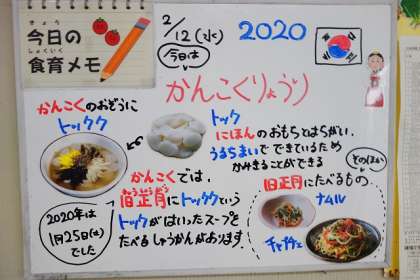 きょう
今日の
しょくいく
食育メモ
2/12(水)
今日は
2020
かんこくりょうり
かんこくのおぞうに
トックク
トック
にほんのおもちとはちがい、
うるちまいでできているため
かみきることができる
かんこくでは、
旧正月にトッククという
トックがはいったスープを
たべるしゅうかんがあります
2020年は
1月25日(土)
でした
そのほか
旧正月にたべるもの
ナムル
チャプチェ